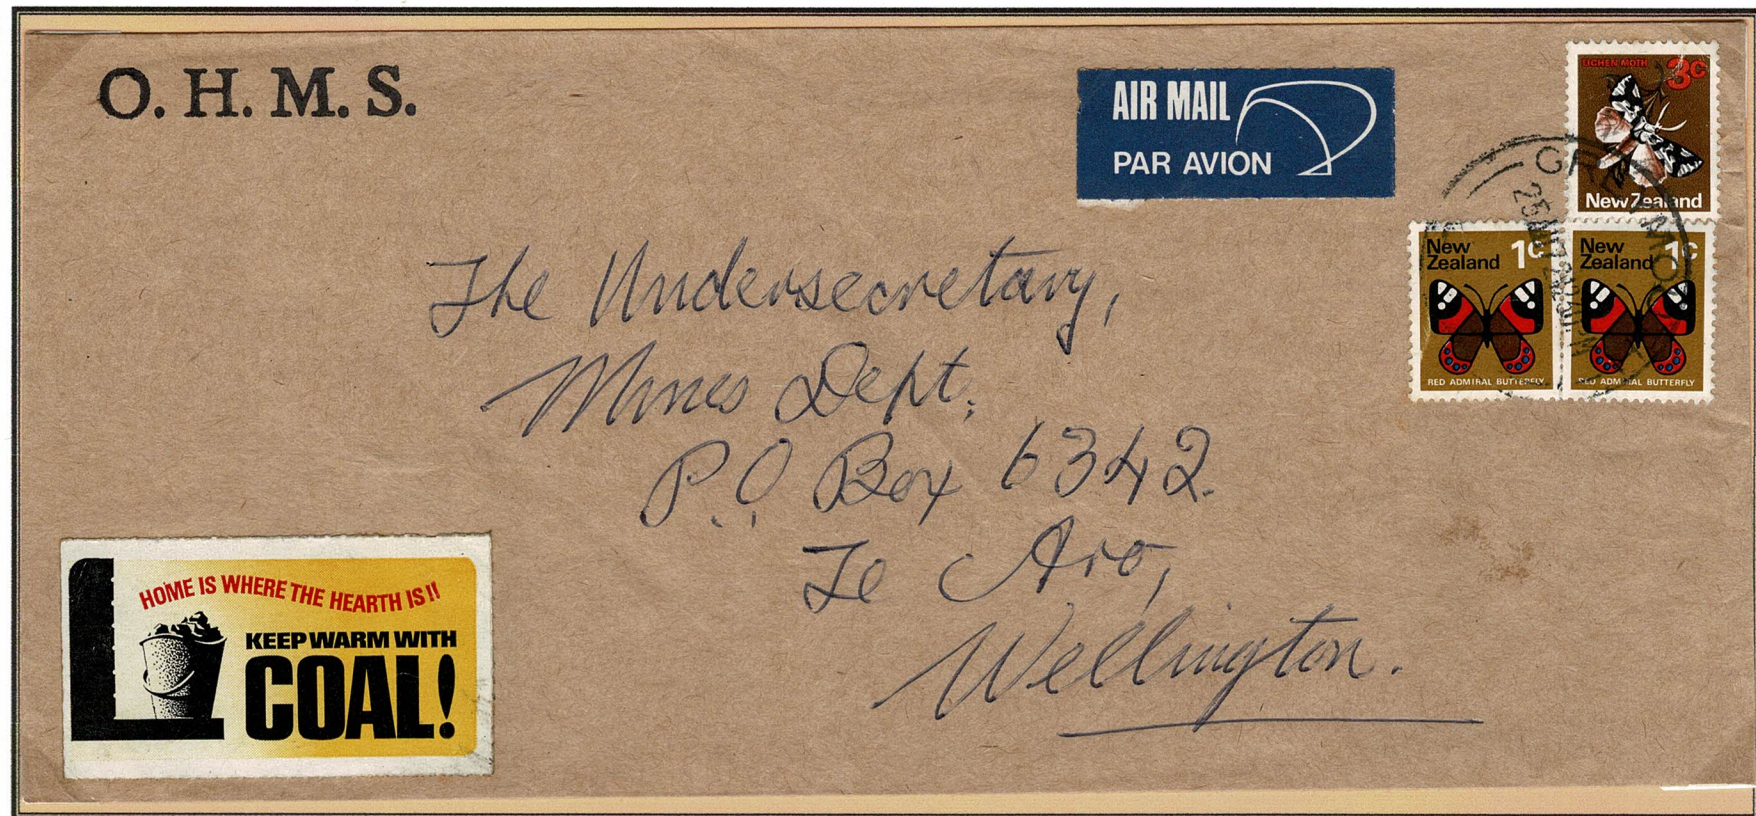 O. H. M. S.
AIR MAIL
PAR AVION
LICHEN MOTH 3c
New Zealand
New Zealand 1c
RED ADMIRAL BUTTERFLY
New Zealand 1c
RED ADMIRAL BUTTERFLY
The Undersecretary,
Mines Dept.
P.O Box 6342.
Te Aro,
Wellington.
HOME IS WHERE THE HEARTH IS!!
KEEP WARM WITH
COAL!